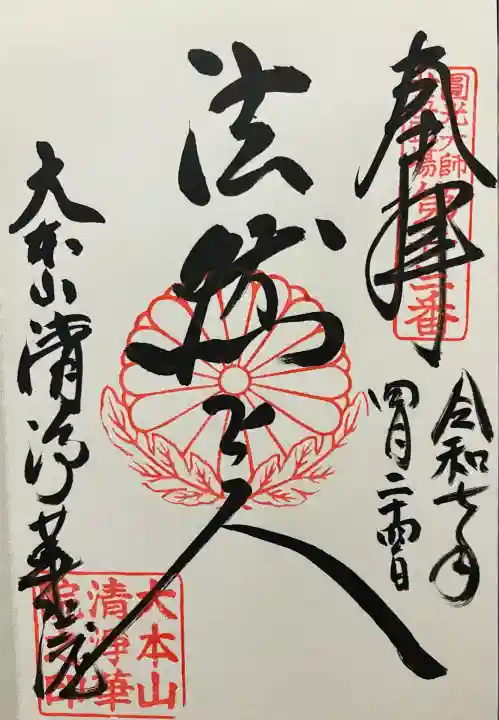 奉拝
圓光大師
番
令和七年
四月二十四日
法然上人
大本山清浄華院
大本山
清浄華
院印